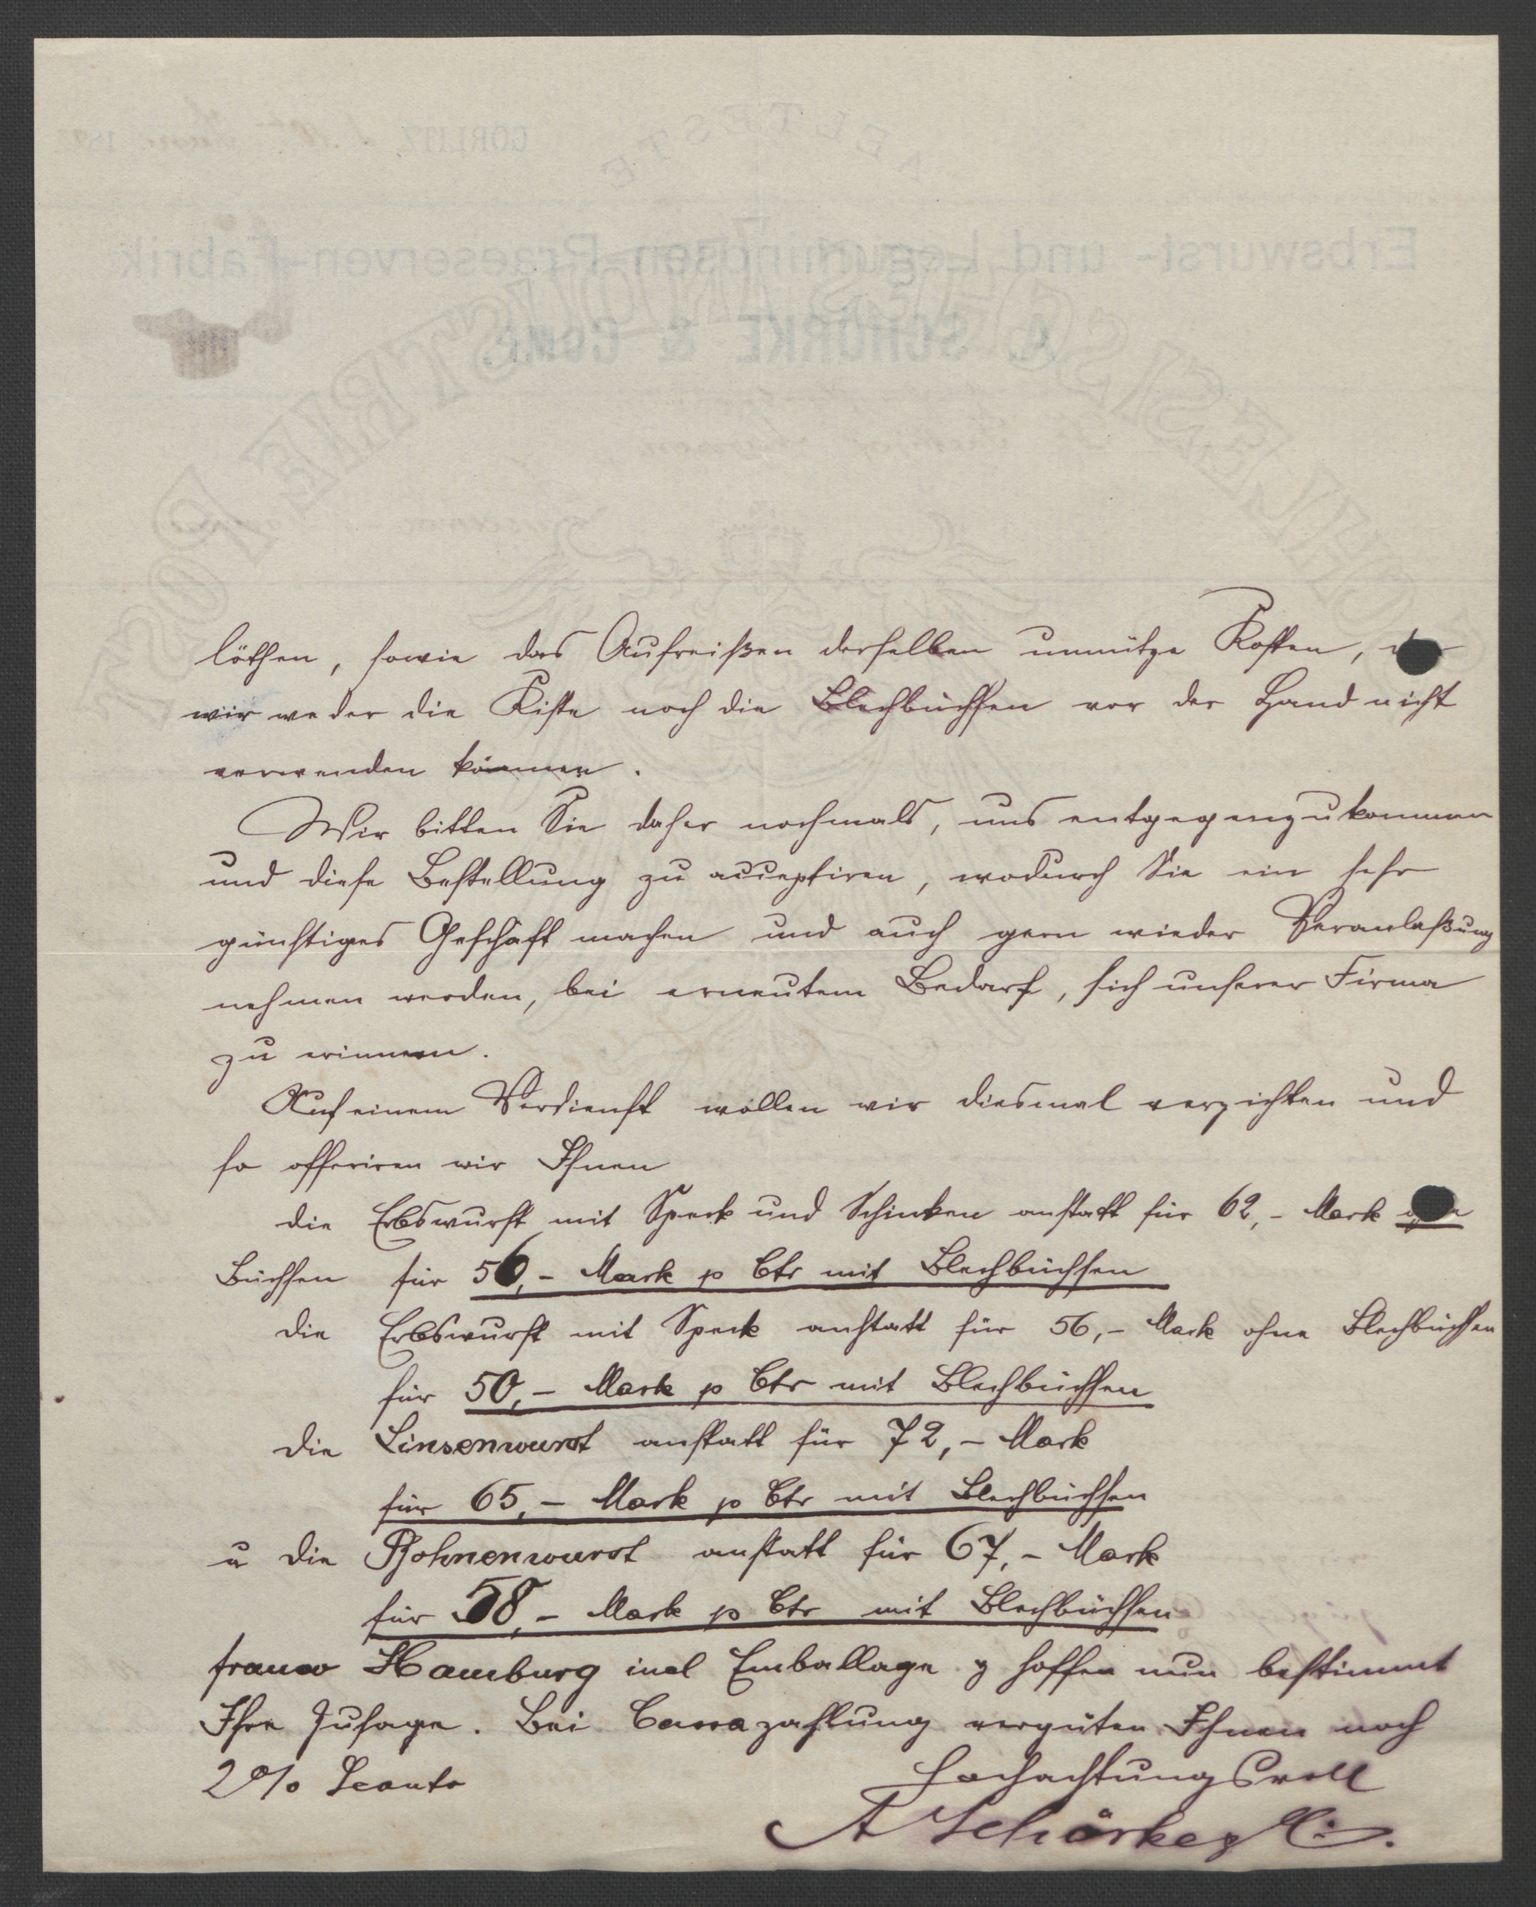 löthen, sowie das Aufreißen derselben unnütze Kosten, da
wir weder die Kiste noch die Blechbüchsen vor der Hand nicht
verwenden können.
Wir bitten Sie daher nochmals, uns entgegenzukommen
und diese Bestellung zu acceptiren, wodurch Sie ein sehr
günstiges Geschäft machen und auch gern wieder Veranlaßung
nehmen werden, bei erneutem Bedarf, sich unserer Firma
zu erinnern.
Auf einem Verdienst wollen wir diesmal verzichten und
so offeriren wir Ihnen
die Erbswurst mit Speck und Schinken anstatt für 62,- Mark ohne
Büchsen für 56,- Mark p Ctr mit Blechbüchsen
die Erbswurst mit Speck anstatt für 56,- Mark ohne Blechbüchsen
für 50,- Mark p Ctr mit Blechbüchsen
die Linsenwurst anstatt für 72,- Mark
für 65,- Mark p Ctr mit Blechbüchsen
u die Bohnenwurst anstatt für 67,- Mark
für 58,- Mark p Ctr mit Blechbüchsen
franco Hamburg incl Emballage & hoffen nun bestimmt
Ihre Zusage. Bei Cassazahlung vergüten Ihnen noch
2% Sconto
Hochachtungsvoll
A Schörke & Co.